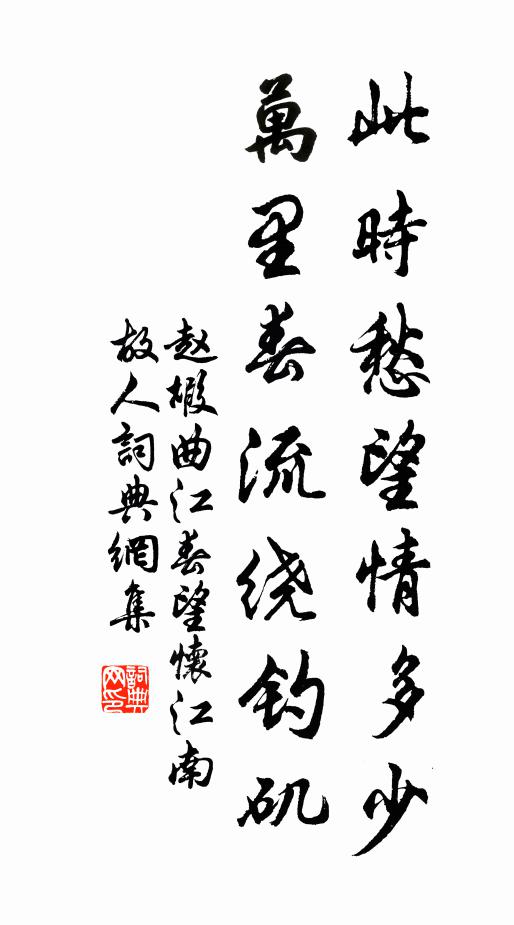 此時愁望情多少
萬里春流绕钓矶
赵嘏曲江春望懷江南
故人詞典網集
詞典网印